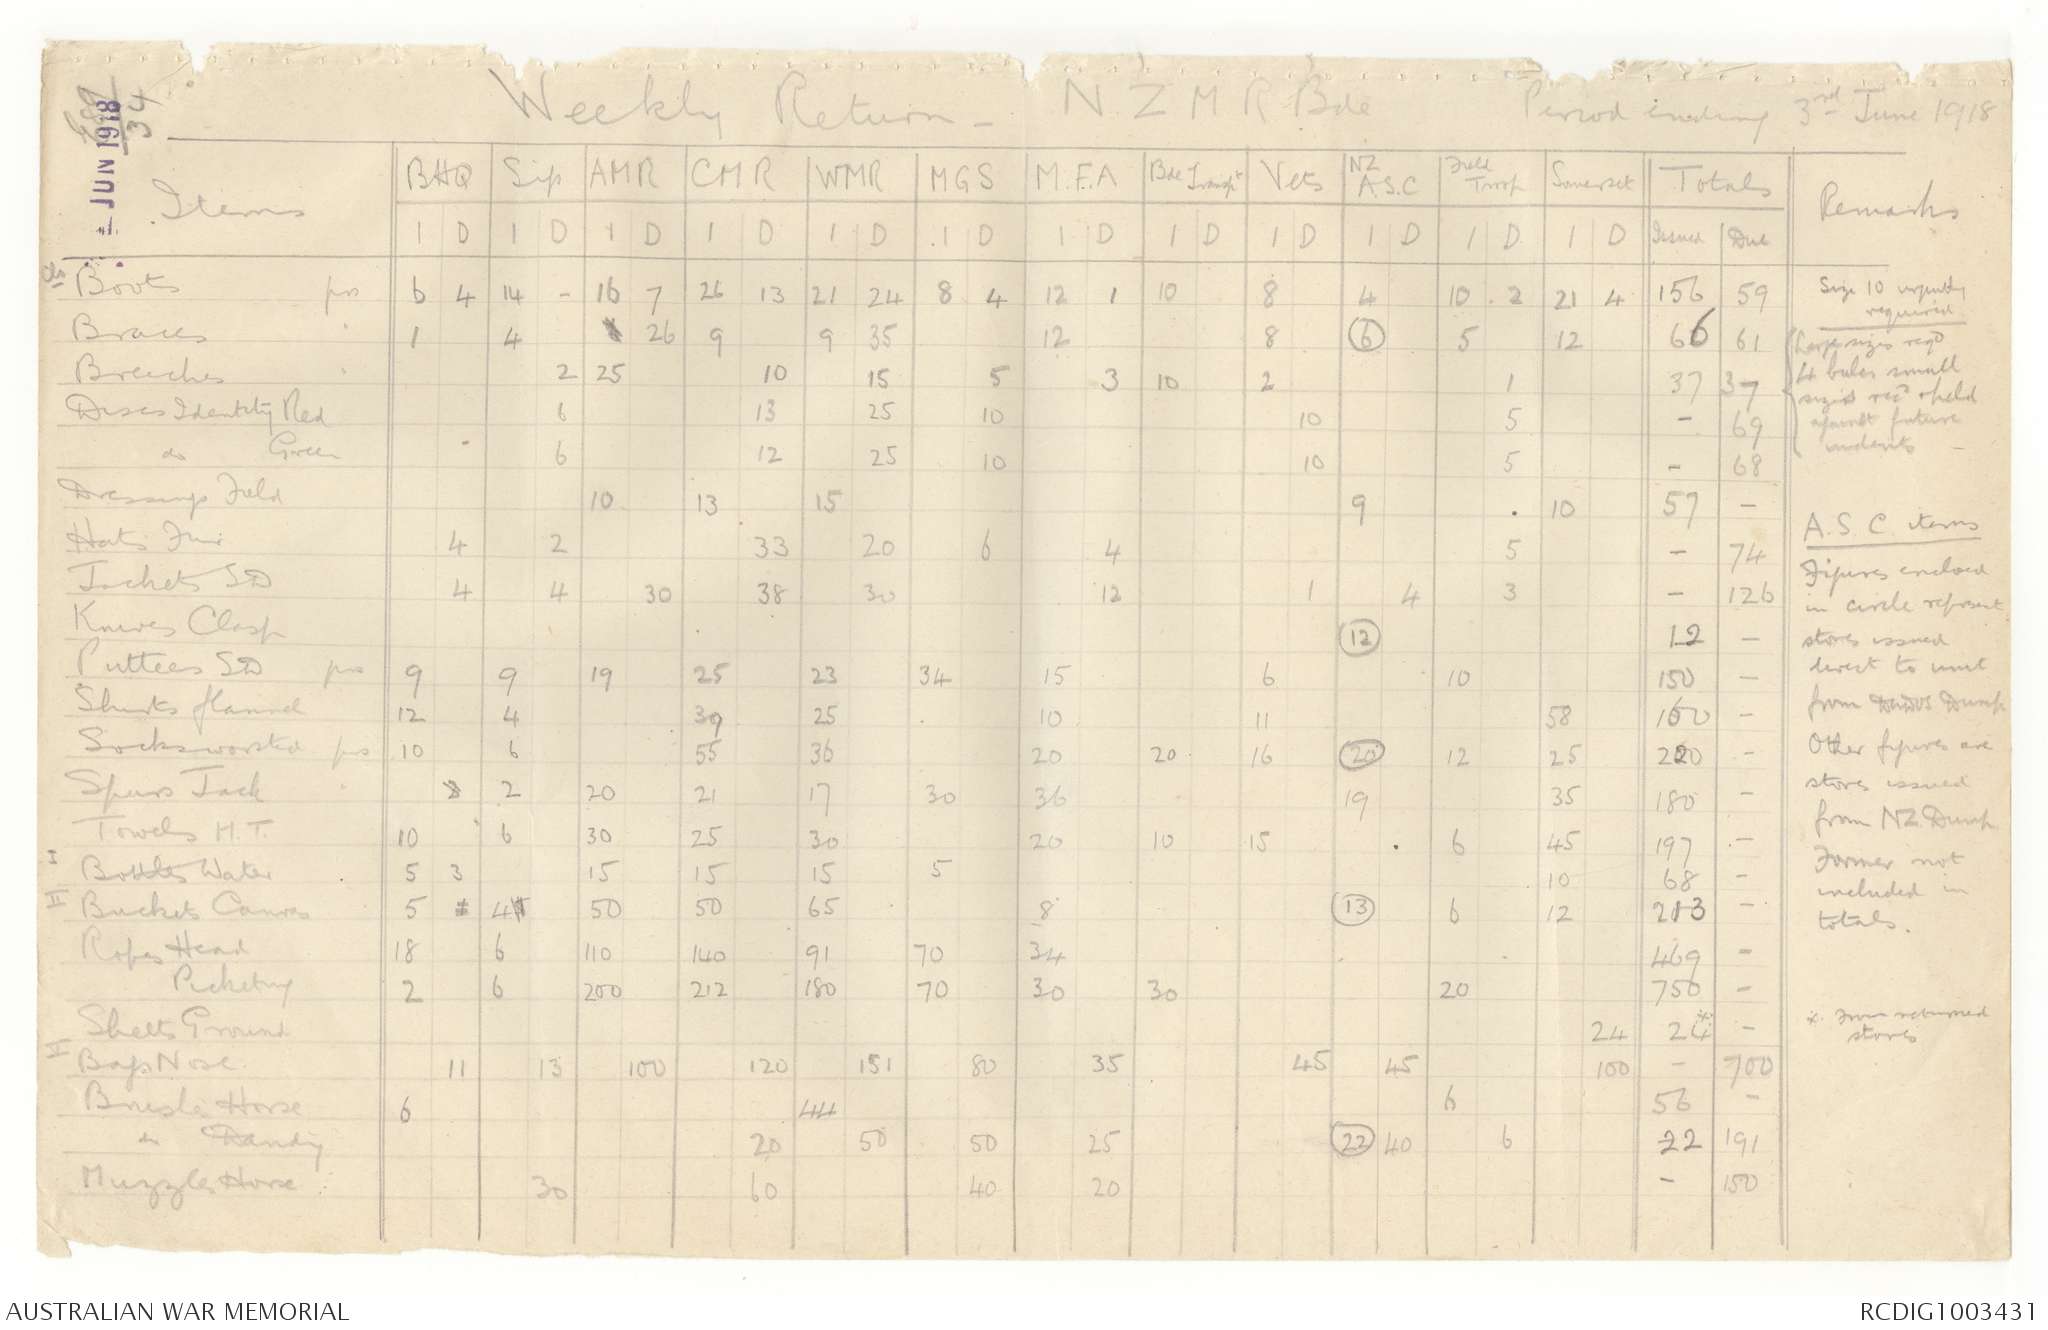 Weekly Return - N Z M R Bde Period ending 3rd June 1918
JUN 1918
34
Items BHQ Sig AMR CMR WMR MGS M.F.A Bde Transpt Vets NZ A.S.C Field Troop Somerset Totals Remarks
I D I D I D I D I D I D I D I D I D I D I D I D Issued Due
Boots prs 6 4 14 - 16 7 26 13 21 24 8 4 12 1 10 8 4 10 2 21 4 156 59
Braces " 1 4 26 9 9 35 12 8 (6) 5 12 66 61
Breeches " 2 25 10 15 5 3 10 2 1 37 37
Discs Identity Red 6 13 25 10 10 5 - 69
do Green 6 12 25 10 10 5 - 68
Dressings Field 10 13 15 9 10 57 -
Hats Fur 4 2 33 20 6 4 5 - 74
Jackets SD 4 4 30 38 30 12 1 4 3 - 126
Knives Clasp (12) 12 -
Puttees SD prs 9 9 19 25 23 34 15 6 10 150 -
Shirts flannel 12 4 39 25 10 11 58 160 -
Socks worsted prs 10 6 55 36 20 20 16 (20) 12 25 220 -
Spurs Jack " 2 20 21 17 30 36 19 35 180 -
Towels H.T. 10 6 30 25 30 20 10 15 6 45 197 -
I Bottles Water 5 3 15 15 15 5 10 68 -
II Buckets Canvas 5 4 50 50 65 8 (13) 6 12 213 -
Ropes Head 18 6 110 140 91 70 34 469 -
Picketing 2 6 200 212 180 70 30 30 20 750 -
Sheets Ground 24 24* -
Bags Nose 11 13 100 120 151 80 35 45 45 100 - 700
Brushes Horse 6 44 6 56 -
do Dandy 20 50 50 25 (22) 40 6 22 191
Muzzles Horse 30 60 40 20 - 150
Size 10 urgently
required
Large sizes reqd
4 bales small
sizes recd & held
against future
indents -
A.S.C. items
Figures enclosed
in circle represent
stores issued
direct to unit
from DADOS Dump
Other figures are
stores issued
from NZ Dump.
Former not
included in
totals.
* From returned
stores
AUSTRALIAN WAR MEMORIAL RCDIG1003431